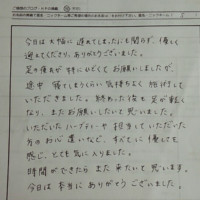 今日は大幅に遅れてしまったにも関らず、優しく
迎えてくださり、ありがとうございました。
足の疲れが特にひどくてお願いしましたが、
途中 寝てしまうくらい気持ちよく施術して
いただきました。終わった後も足が軽く
なり、またお願いしたいと思いました。
いただいたハーブティーや担当していただいた
方のお心遣いなど、すべてに優しくを
感じ、とても気に入りました。
時間ができたらまた来たいと思います。
今日は本当にありがとうございました。